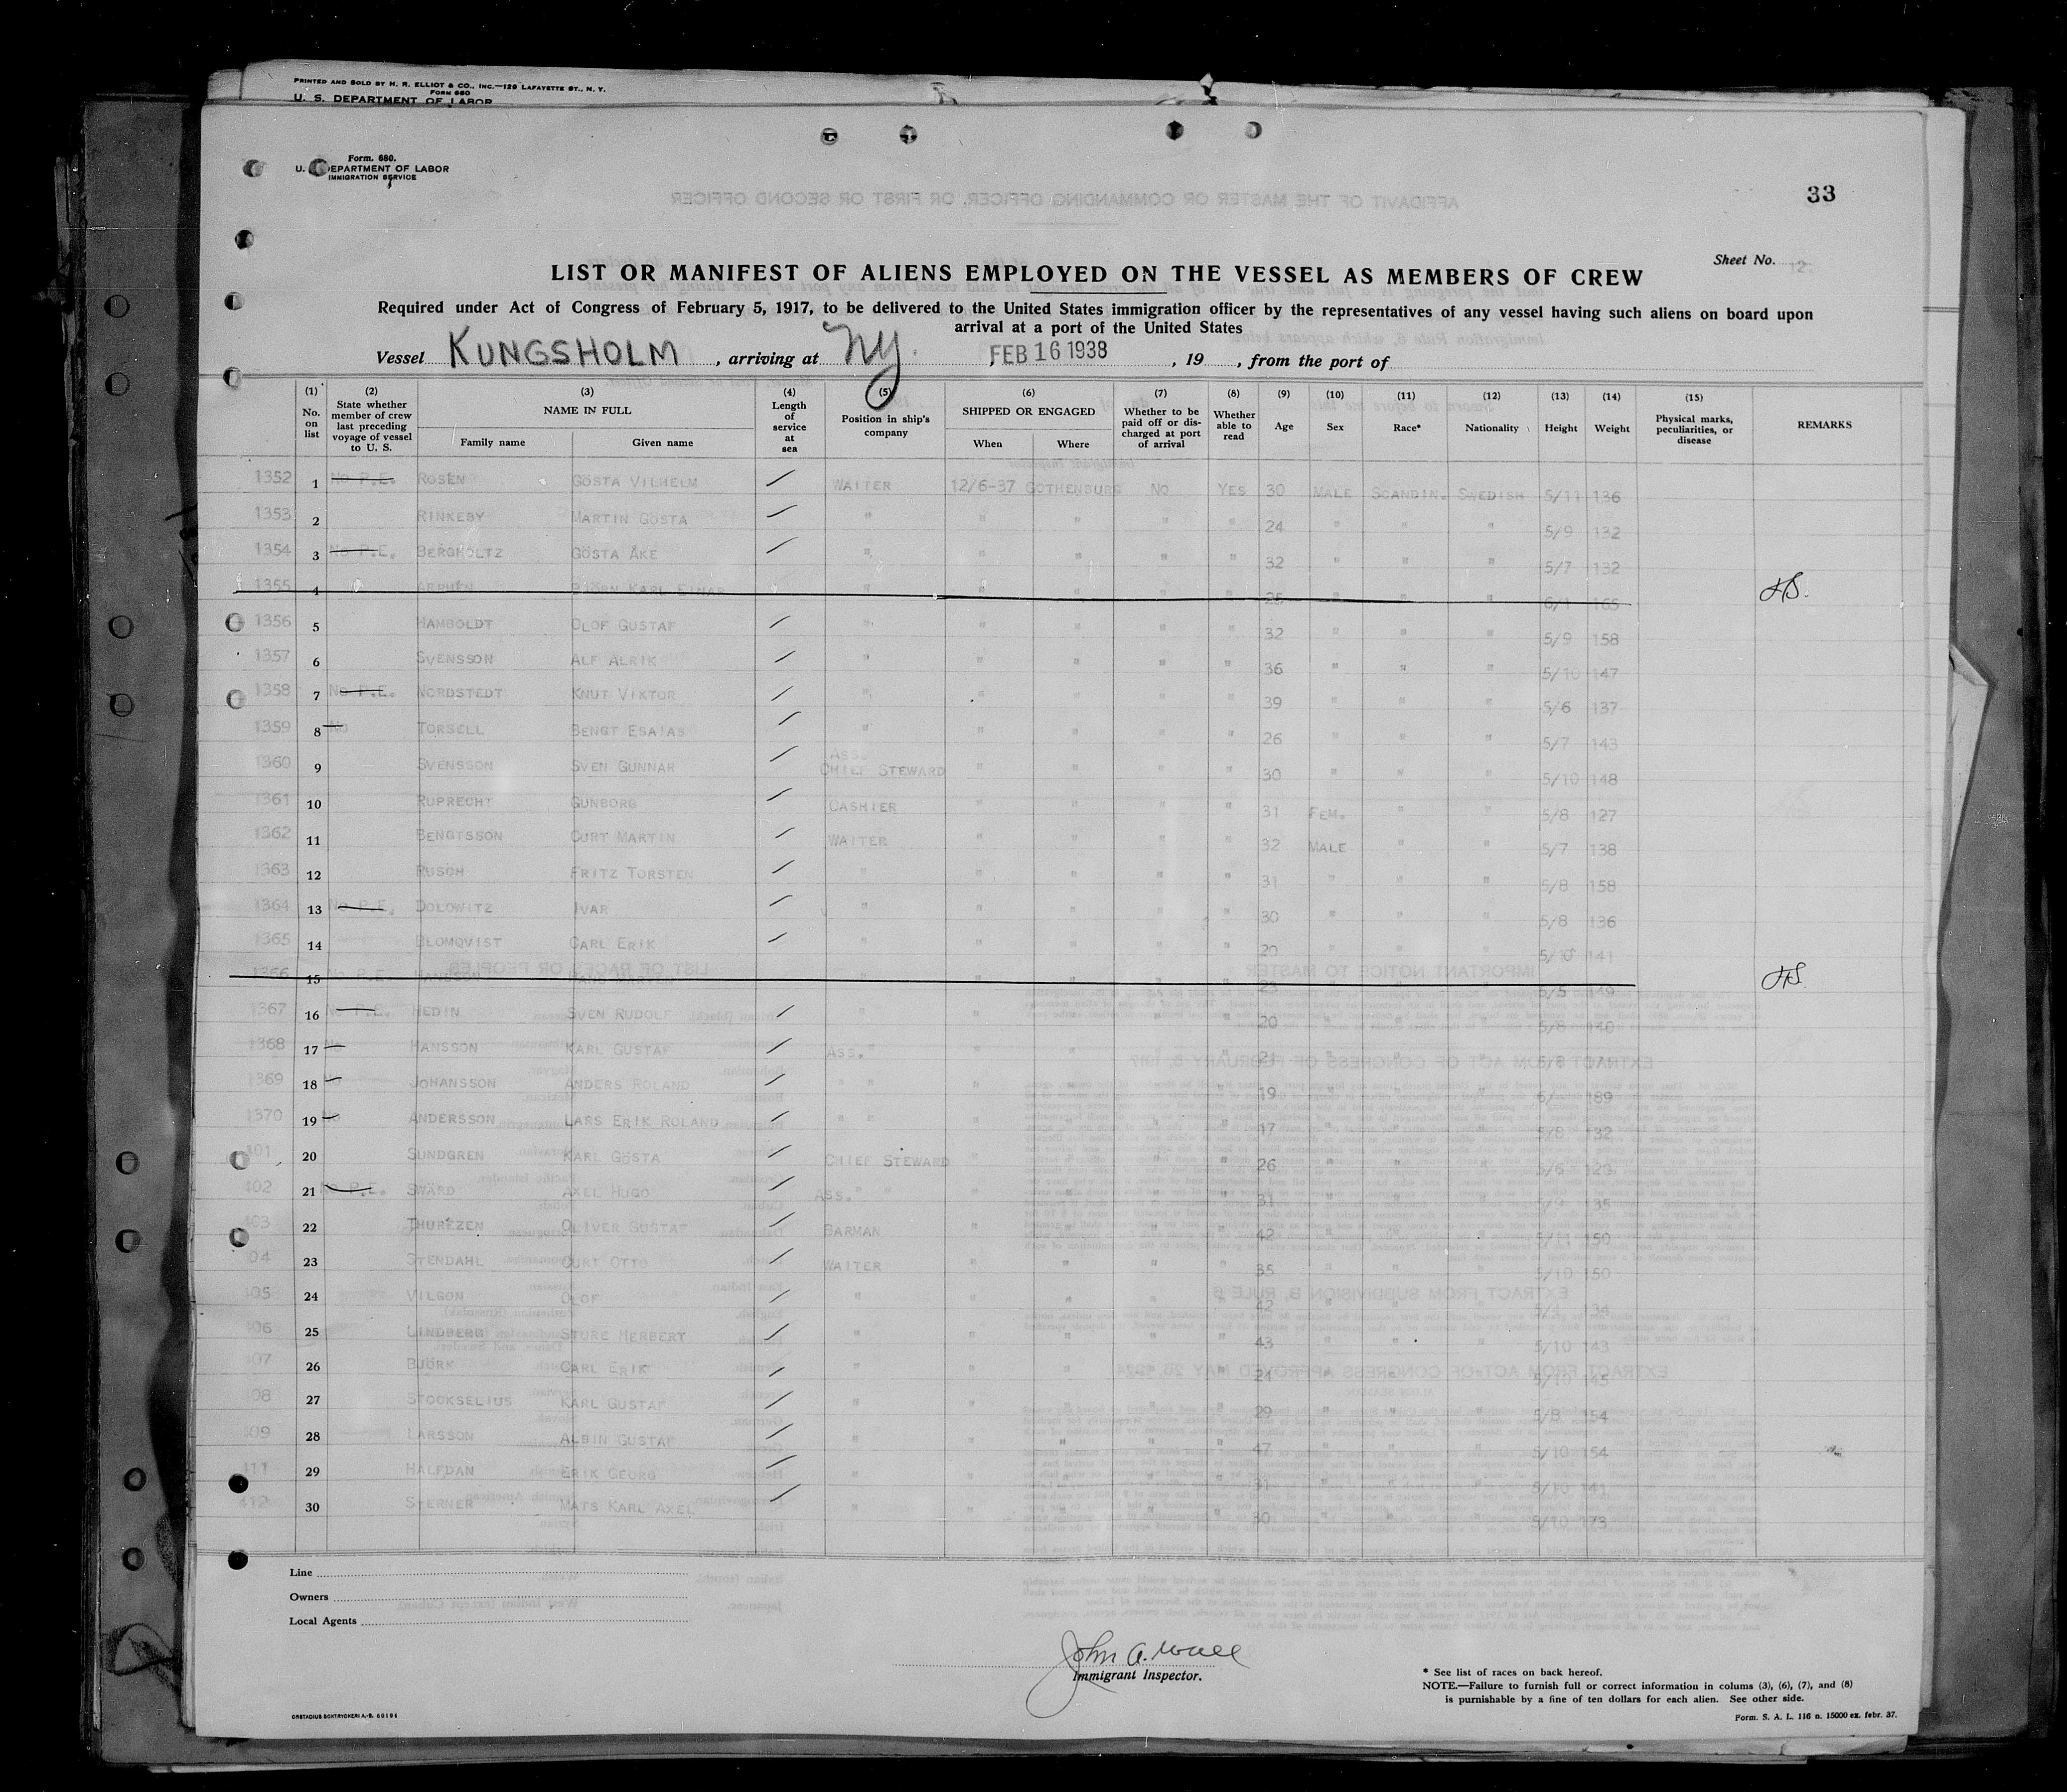 PRINTED AND SOLD BY H. R. ELLIOT & CO., INC.—129 LAFAYETTE ST., N. Y.
FORM 680
U. S. DEPARTMENT OF LABOR
Form. 680.
U. S. DEPARTMENT OF LABOR
IMMIGRATION SERVICE
33
Sheet No. 12.
LIST OR MANIFEST OF ALIENS EMPLOYED ON THE VESSEL AS MEMBERS OF CREW
Required under Act of Congress of February 5, 1917, to be delivered to the United States immigration officer by the representatives of any vessel having such aliens on board upon
arrival at a port of the United States
Vessel KUNGSHOLM, arriving at NY. FEB 16 1938, 19, from the port of
(1) No. on list (2) State whether member of crew last preceding voyage of vessel to U. S. (3) NAME IN FULL Family name Given name (4) Length of service at sea (5) Position in ship's company (6) SHIPPED OR ENGAGED When Where (7) Whether to be paid off or discharged at port of arrival (8) Whether able to read (9) Age (10) Sex (11) Race* (12) Nationality (13) Height (14) Weight (15) Physical marks, peculiarities, or disease REMARKS
1352 1 No P.E. ROSÉN GÖSTA VILHELM WAITER 12/6-37 GOTHENBURG NO YES 30 MALE SCANDIN. SWEDISH 5/11 136
1353 2 RINKEBY MARTIN GÖSTA " " " " " 24 " " " 5/9 132
1354 3 No P.E. BERGHOLTZ GÖSTA ÅKE " " " " " 32 " " " 5/7 132
1355 4 BJÖRN KARL EINAR " " " " " 25 " " " 6/1 165 HS.
1356 5 HAMBOLDT OLOF GUSTAF " " " " " 32 " " " 5/9 158
1357 6 SVENSSON ALF ALRIK " " " " " 36 " " " 5/10 147
1358 7 No P.E. NORDSTEDT KNUT VIKTOR " " " " " 39 " " " 5/6 137
1359 8 No TORSELL BENGT ESAIAS " " " " " 26 " " " 5/7 143
1360 9 SVENSSON SVEN GUNNAR ASS. CHIEF STEWARD " " " " 30 " " " 5/10 148
1361 10 RUPRECHT GUNBORG CASHIER " " " " 31 FEM. " " 5/8 127
1362 11 BENGTSSON CURT MARTIN WAITER " " " " 32 MALE " " 5/7 138
1363 12 RUSCH FRITZ TORSTEN " " " " " 31 " " " 5/8 158
1364 13 No P.E. DOLOWITZ IVAR " " " " " 30 " " " 5/8 136
1365 14 BLOMQVIST CARL ERIK " " " " " 20 " " " 5/10 141
1366 15 No P.E. HANSSON HANS MÅRTEN " " " " " 23 " " " 5/5 149 HS
1367 16 No P.E. HEDIN SVEN RUDOLF " " " " " 20 " " " 5/8 140
1368 17 No HANSSON KARL GUSTAF ASS. " " " " " 21 " " " 5/8
1369 18 No JOHANSSON ANDERS ROLAND " " " " " " 19 " " " 6/ 189
1370 19 No ANDERSSON LARS ERIK ROLAND " " " " " " 17 " " " 5/8 132
401 20 SUNDGREN KARL GÖSTA CHIEF STEWARD " " " " 26 " " " 5/6 123
402 21 No P.E. SWÄRD AXEL HUGO ASS. " " " " " " 31 " " " 5/9 135
403 22 THUREZEN OLIVER GUSTAF BARMAN " " " " 42 " " " 5/11 150
404 23 STENDAHL CURT OTTO WAITER " " " " 35 " " " 5/10 150
405 24 VILGON OLOF " " " " " 42 " " " 134
406 25 LINDBERG STURE HERBERT " " " " " 43 " " " 5/10 143
407 26 BJÖRK CARL ERIK " " " " " 24 " " " 5/10 145
408 27 STOCKSELIUS KARL GUSTAF " " " " " 29 " " " 5/8 154
409 28 LARSSON ALBIN GUSTAF " " " " " 47 " " " 5/10 154
411 29 HALFDAN ERIK GEORG " " " " " 31 " " " 5/10 141
412 30 STERNER MATS KARL AXEL " " " " " 30 " " " 5/10 173
Line
Owners
Local Agents
John A. Wall
Immigrant Inspector.
* See list of races on back hereof.
NOTE.—Failure to furnish full or correct information in colums (3), (6), (7), and (8)
is punishable by a fine of ten dollars for each alien. See other side.
ORSTADIUS BOKTRYCKERI A.-B. 60194
Form. S. A. L. 116 n. 15000 ex. febr. 37.